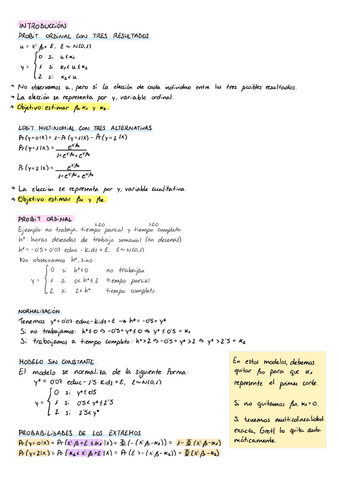 INTRODUCCIÓN
PROBIT ORDINAL CON TRES RESULTADOS
u = x'β₀ + ε, ε ~ N(0,1)
0 si u ≤ α₁
y = 1 si α₁ < u ≤ α₂
2 si α₂ < u
→ No observamos u, pero sí la elección de cada individuo entre los tres posibles resultados.
→ La elección se representa por y, variable ordinal.
→ Objetivo: estimar β₀, α₁ y α₂.
LOGIT MULTINOMIAL CON TRES ALTERNATIVAS
Pr(y=0|X) = 1 - Pr(y=1|X) - Pr(y=2|X)
Pr(y=1|X) =
Pr(y=2|X) =
→ La elección se representa por y, variable cualitativa.
→ Objetivo: estimar
PROBIT ORDINAL
Ejemplo: no trabaja, tiempo parcial y tiempo completo
h*: horas deseadas de trabajo semanal (en decenas)
h* = -0'5 + 0'07 educ - kids + ε, ε ~ N(0,1)
No observamos h*, sino:
0 si h* ≤ 0 no trabajan
y = 1 si 0 < h* ≤ 2 tiempo parcial
2 si 2 < h* tiempo completo
NORMALIZACIÓN
Tenemos y* = 0'07 educ - kids + ε → h* = -0'5 + y*
Si no trabajamos: h* ≤ 0 → -0'5 + y* ≤ 0 → y* ≤ 0'5 = α₁
Si trabajamos a tiempo completo: h* > 2 → -0'5 + y* > 2 → y* > 2'5 = α₂
MODELO SIN CONSTANTE
El modelo se normaliza de la siguiente forma:
y* = 0'07 educ - kids + ε, ε ~ N(0,1)
0 si y* ≤ 0'5
y = 1 si 0'5 < y* ≤ 2'5
2 si 2'5 < y*
En estos modelos, debemos
quitar β₀ para que α₁
represente el primer corte.
Si no quitamos β₀, α₁ = 0.
Si tenemos multicolinealidad
exacta, Gretl lo quita auto-
máticamente.
PROBABILIDADES DE LOS EXTREMOS
Pr(y=0|X) = Pr(x'β + ε ≤ α₁|X) = Φ(-(x'β - α₁)) = 1 - Φ(x'β - α₁)
Pr(y=2|X) = Pr(α₂ < x'β + ε|X) = Pr(ε > -(x'β - α₂)) = Φ(x'β - α₂)